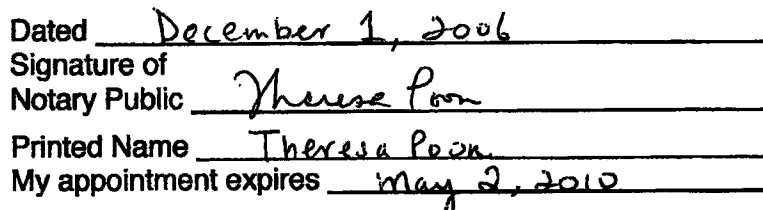 Dated December 1, 2006
Signature of
Notary Public Therese Poon
Printed Name Theresa Poon
My appointment expires May 2, 2010